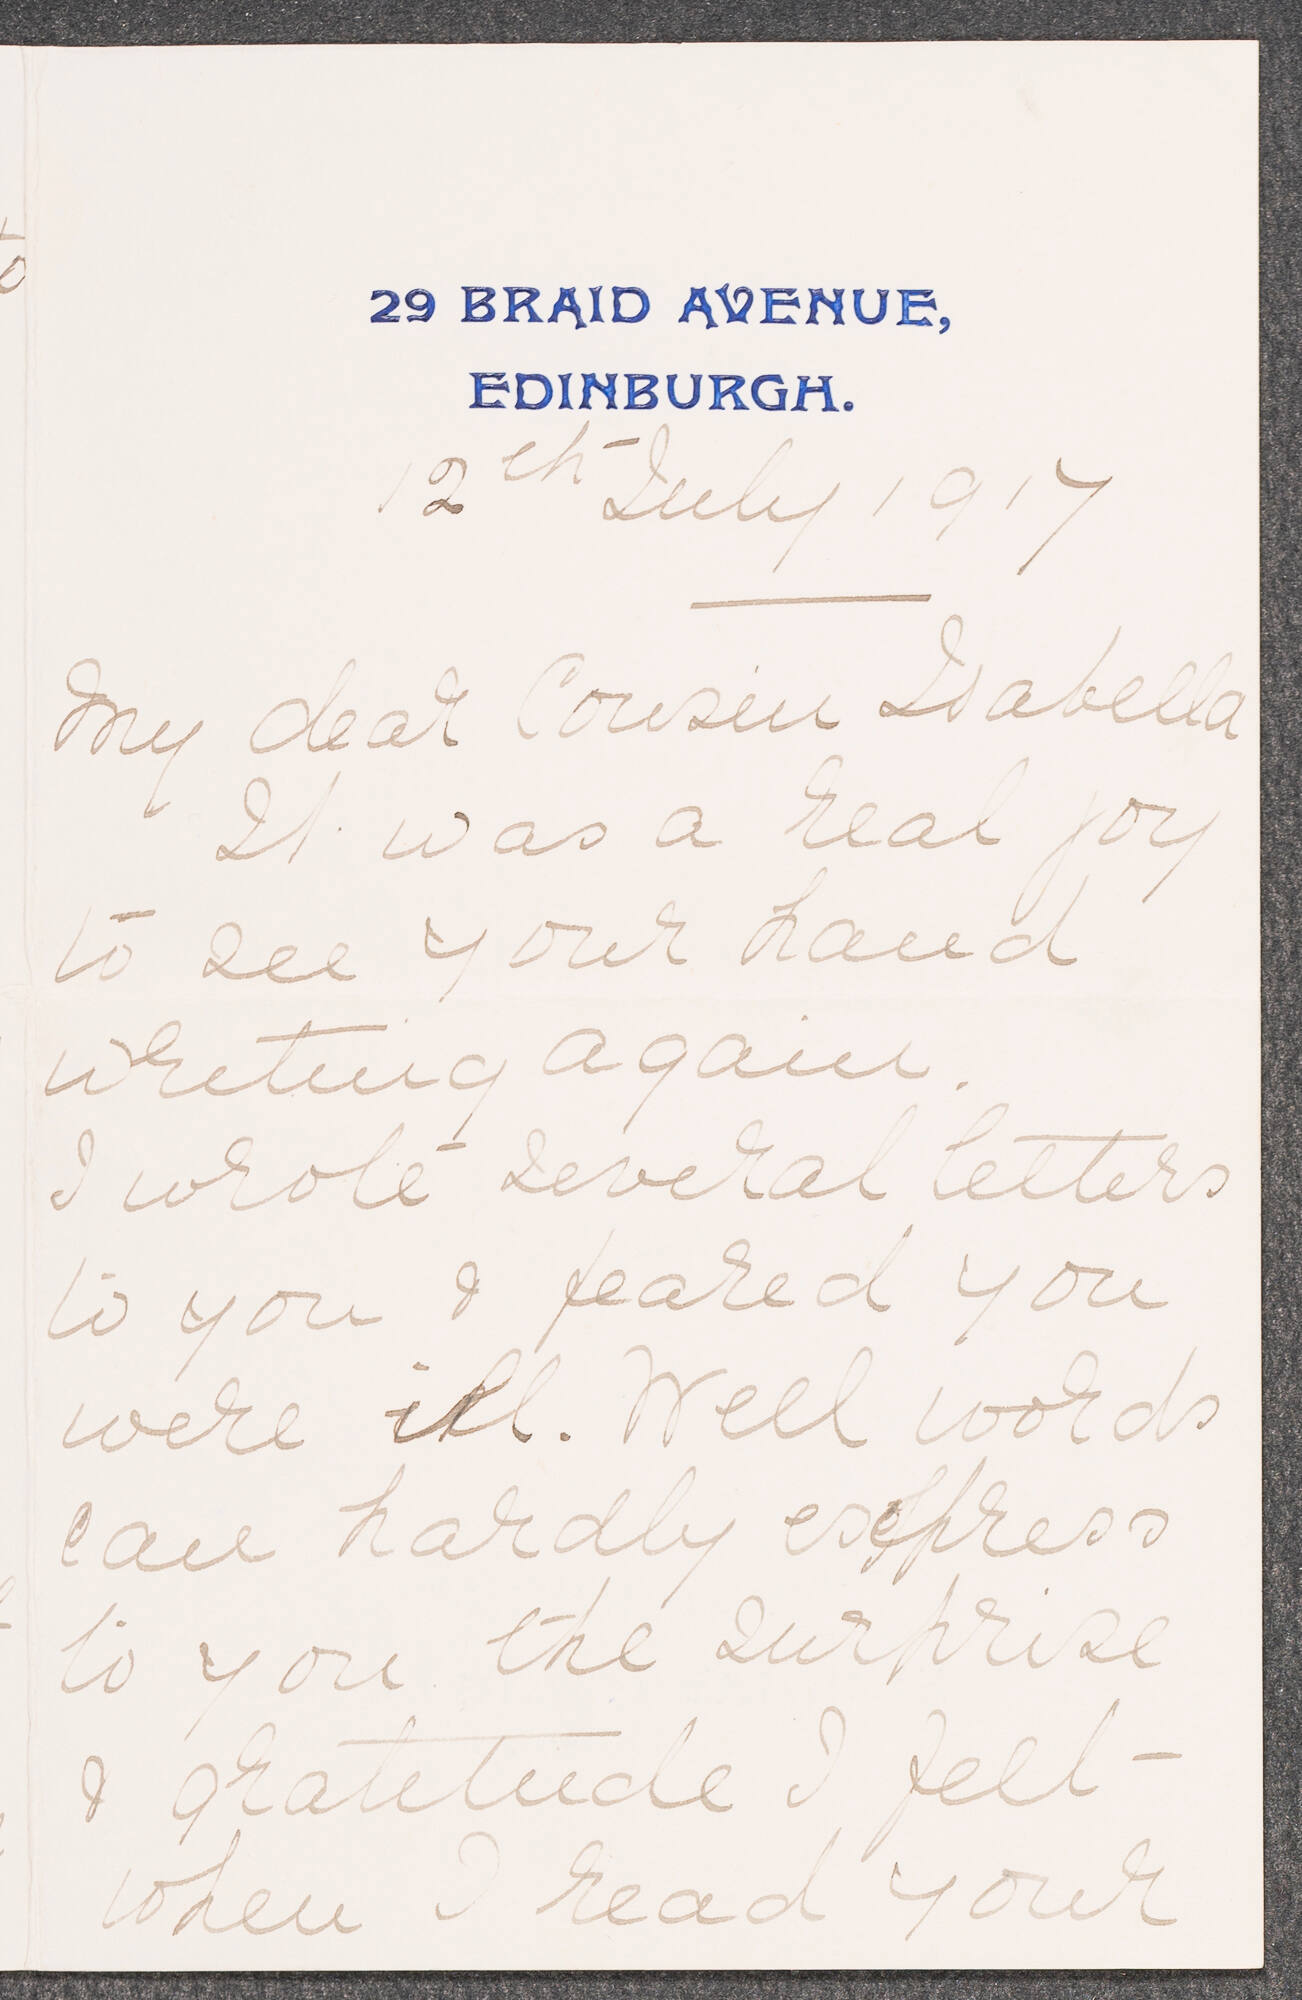 29 BRAID AVENUE,
EDINBURGH.
12th July 1917
My dear Cousin Isabella
It was a real joy
to see your hand
writing again.
I wrote several letters
to you & feared you
were ill. Well words
can hardly express
to you the surprise
& gratitude I felt
when I read your